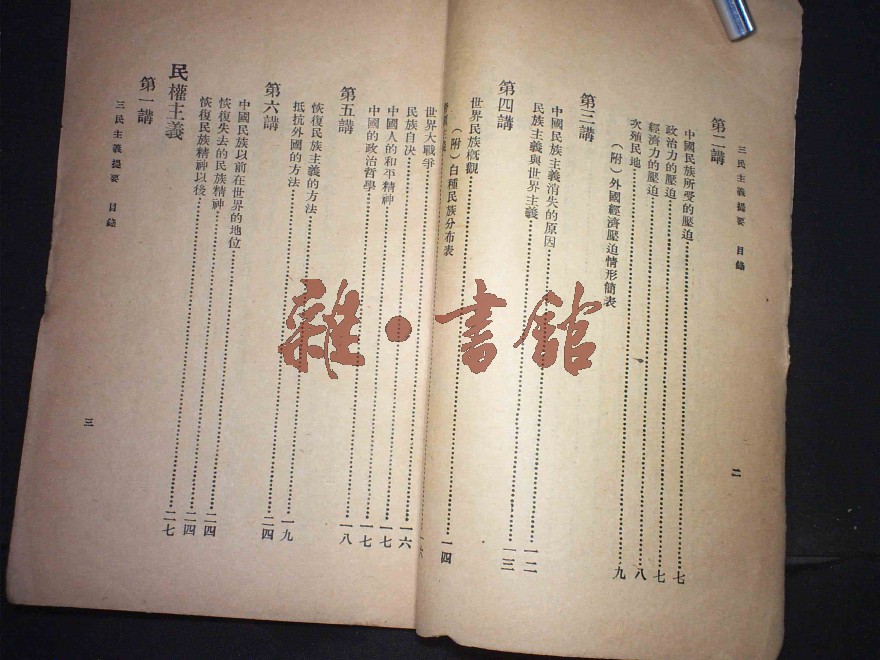 三民主義提要 目錄 二
第二講
中國民族所受的壓迫……七
政治力的壓迫……七
經濟力的壓迫……八
次殖民地……九
(附)外國經濟壓迫情形簡表
第三講
中國民族主義消失的原因……一二
民族主義與世界主義……一三
第四講
世界民族概觀……一四
(附)白種民族分布表
世界大戰爭……
民族自決……一六
中國人的和平精神……一七
中國的政治哲學……一七
第五講……一八
恢復民族主義的方法
抵抗外國的方法……一九
第六講……二四
中國民族以前在世界的地位
恢復失去的民族精神……二四
恢復民族精神以後……二四
民權主義……二七
第一講
三民主義提要 目錄 三
雜·書館